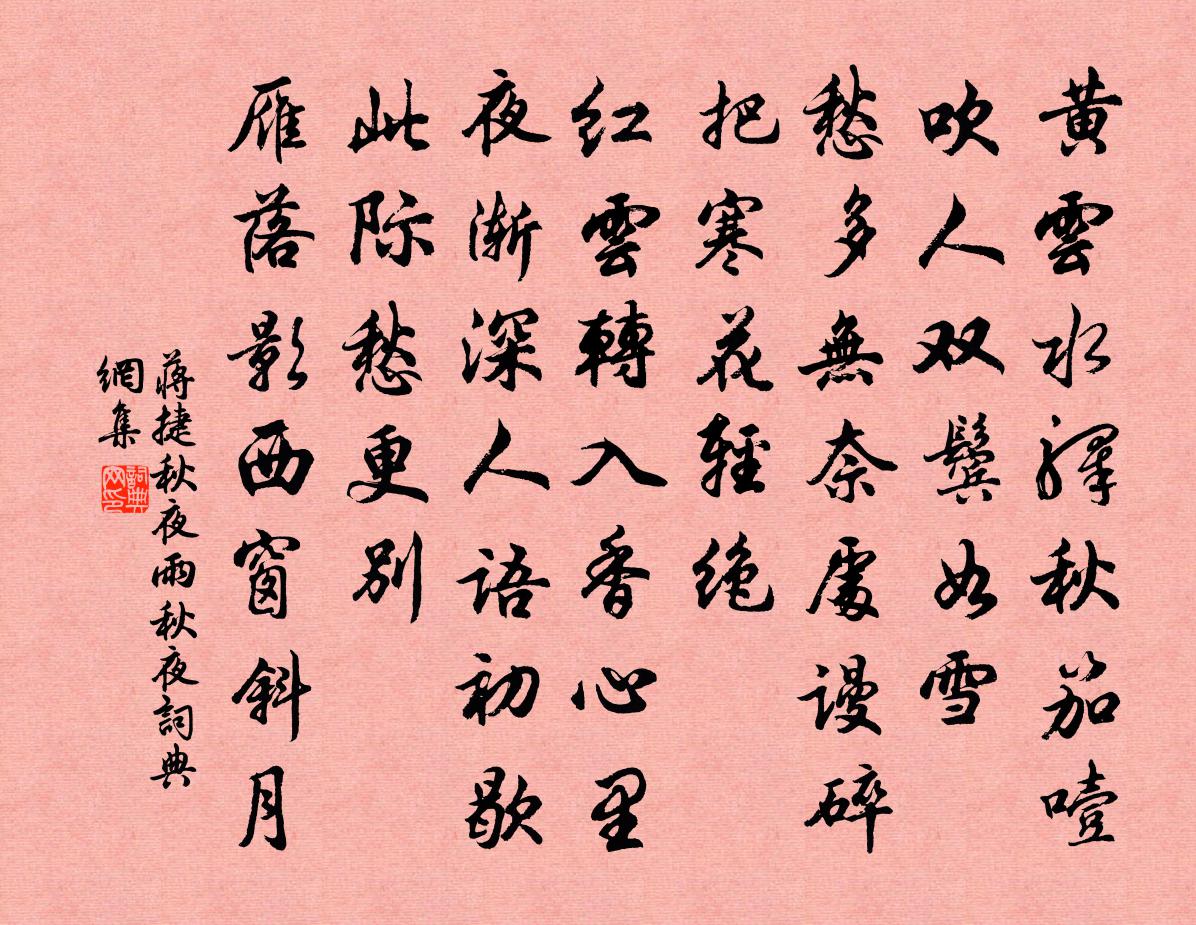 黄雲水驛秋笳噎
吹人双鬓如雪
愁多無奈處谩碎
把寒花輕绝
红雲轉入香心里
夜渐深人語初歇
此际愁更别
雁落影西窗斜月
蔣捷秋夜雨秋夜詞典
網集
詞典
网印